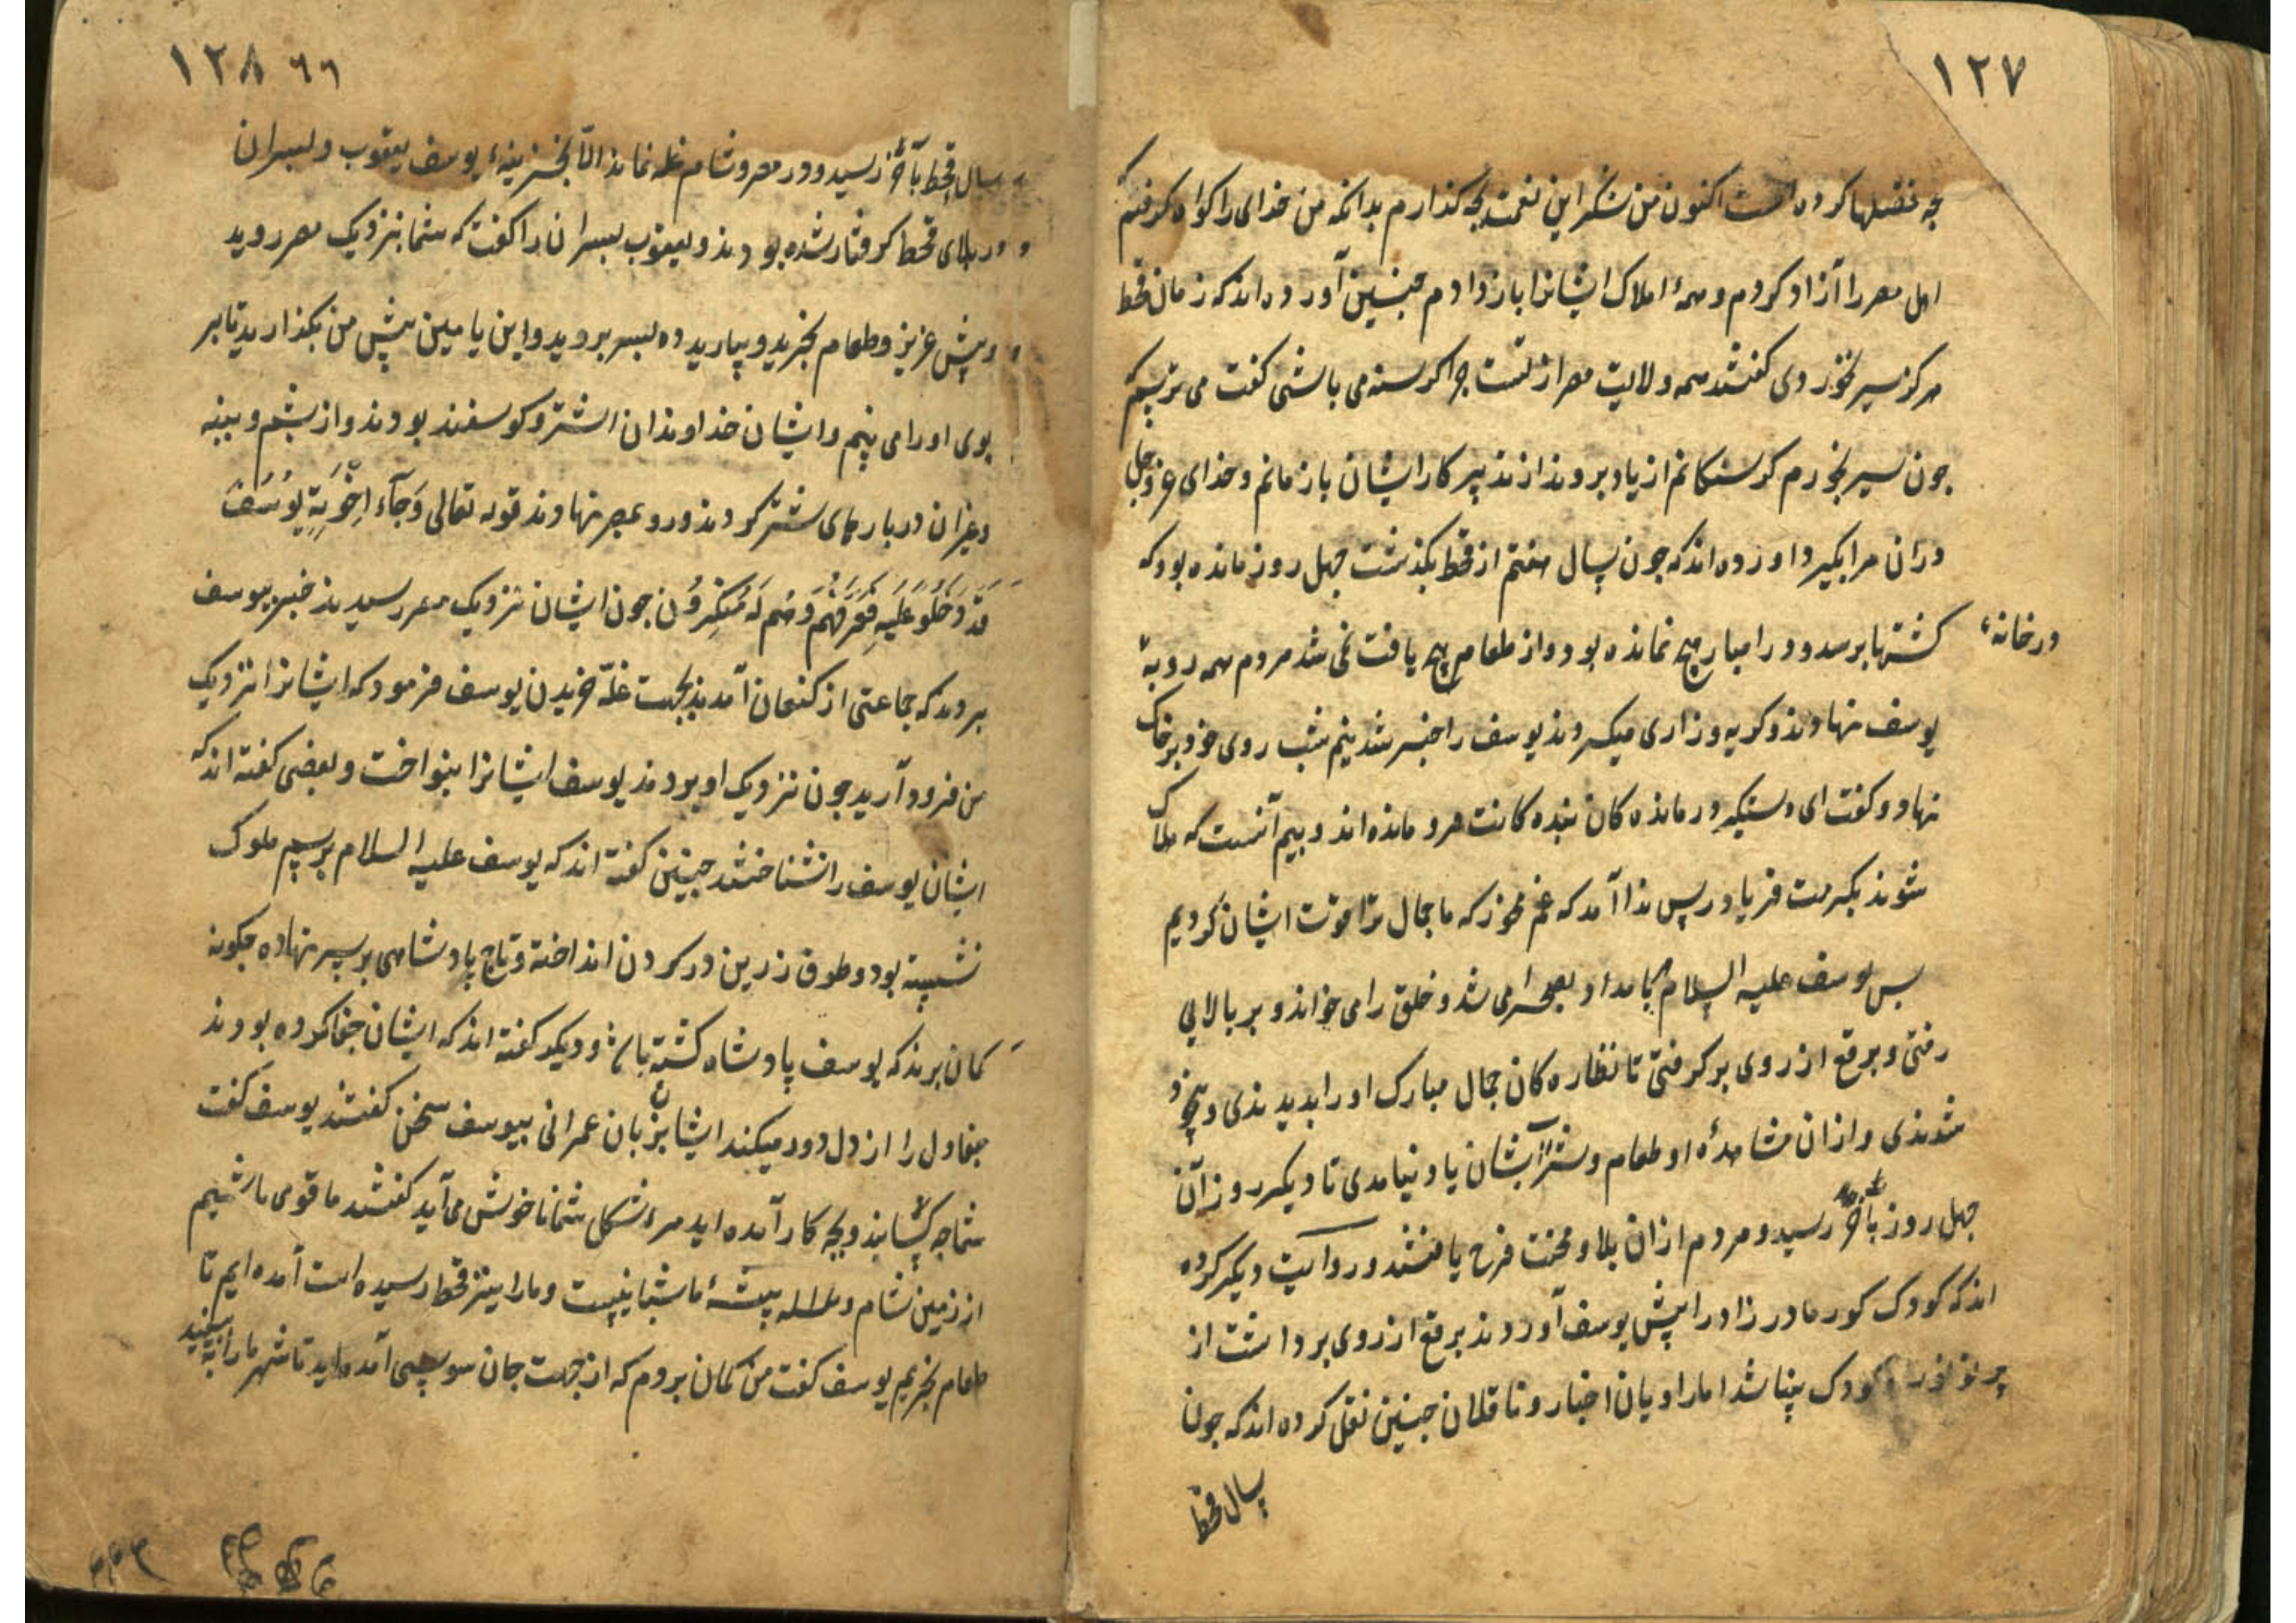 ۱۲۷
چه فضلها کرده است اکنون من شکر این نعمت بچه کذارم بدانکه من خدای را کواه کرفتم
اهل مصر را آزاد کردم و همهٔ املاک ایشانرا باز دادم چنین آورده اند که زمان قحط
هرکز سیر نخوردی کفتند همه ولایت مصر از تست چرا کرسنه می باشی کفت می ترسیم که
چون سیر بخورم کرسنکانم از یاد بروند از تدبیر کار ایشان باز مانم و خدای عز و جل
دران مرا بکیرد اورده اند که چون سال هفتم از قحط بکذشت چهل روز مانده بود که
درخانهٔ
کشتها برسد و در انبار هیچ نمانده بود و از طعام هیچ یافت نمی شد مردم همه رو به
یوسف نهادند و کریه و زاری میکردند یوسف را خبر شد نیم شب روی خود بر خاک
نهاد و کفت ای دستکیر درمانده کان بنده کانت فرو مانده اند و بیم آنست که هلاک
شوند بکرمت فریاد رس ندا آمد که غم مخور که ما جمال ترا قوت ایشان کردیم
پس یوسف علیه السلام بامداد بصحرا می شد و خلق را می خواند و بر بالایی
رفتی و برقع از روی بر کرفتی تا نظاره کان جمال مبارک او را بدیدندی و بیخود
شدندی و ازان مشاهدهٔ او طعام و شراب ایشان یاد نیامدی تا دیکر روز آن
چهل روز بآخر رسید و مردم ازان بلا و محنت فرح یافتند و روایت دیکر کرده
اند که کودک کور مادر زاد را پیش یوسف آوردند برقع از روی برداشت از
پرتو نور کودک بینا شد اما راویان اخبار و ناقلان چنین نقل کرده اند که چون
سال قحط
۱۲۸ ٦٦
سال قحط بآخر رسید و در مصر و شام غله نماند الّا بخزینهٔ یوسف یعقوب و پسران
در بلای قحط کرفتار شده بودند و یعقوب پسران را کفت که شما بنزدیک مصر روید
و پیش عزیز و طعام بخرید و بیارید ده پسر بروید و ابن یامین پیش من بکذارید تا بر
بوی او را می بینم و ایشان خداوندان اشتر و کوسفند بودند و از پشم و پنبه
و غیران در بارهای شتر کردند و رو بمصر نهادند قوله تعالی وَجَآءَ اِخْوَةِ یُوسَفَ
فَدَخَلُوا عَلَیهِ فَعَرَفَهُم وَهُم لَهُ مُنکِرُون چون ایشان نزدیک مصر رسیدند خبر بیوسف
بردند که جماعتی از کنعان آمدند بجهت غلّه خریدن یوسف فرمود که ایشانرا نزدیک
من فرود آرید چون نزدیک او بردند یوسف ایشانرا بنواخت و بعضی کفته اند که
ایشان یوسف را نشناختند چنین کفته اند که یوسف علیه السلام برسم ملوک
نشسته بود و طوق زرین در کردن انداخته و تاج پادشاهی بر سر نهاده چکونه
کمان برند که یوسف پادشاه کشته باشد و دیکر کفته اند که ایشان جفا کرده بودند
جفا دل را از دل دور میکند ایشان بزبان عمرانی بیوسف سخن کفتند یوسف کفت
شما چه کسانید و بچه کار آمده اید مرا شکل شما ناخوش می آید کفتند ما قومی باشیم
از زمین شام و پیشهٔ ما شبانیست و ما را نیز قحط رسیده است آمده ایم تا
طعام بخریم یوسف کفت من کمان بردم که از جهت جان سوسی آمده اید تا شهر ما را ببینید